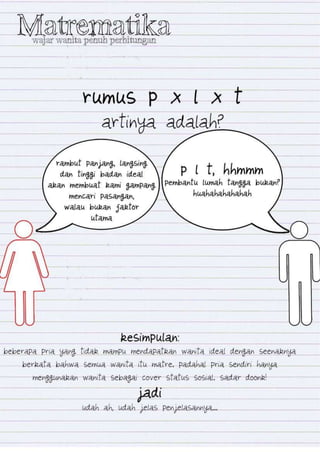 Matrematika
wajar wanita penuh perhitungan
rumus p x l x t
artinya adalah?
rambut panjang, langsing
dan tinggi badan ideal
akan membuat kami gampang
mencari pasangan,
walau bukan faktor
utama
p l t, hhmmm
pembantu lumah tangga bukan?
huahahahahahah
kesimpulan:
beberapa pria yang tidak mampu mendapatkan wanita ideal dengan seenaknya
berkata bahwa semua wanita itu matre, padahal pria sendiri hanya
menggunakan wanita sebagai cover status sosial, sadar doonk!
jadi
udah ah, udah jelas penjelasannya...